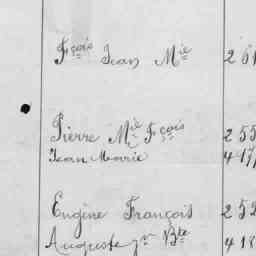 Fçois Jean Mie 2 5
Pierre Mie Fçois 255
Jean Marie 417
Eugène François 252
Auguste Jn Bte 418